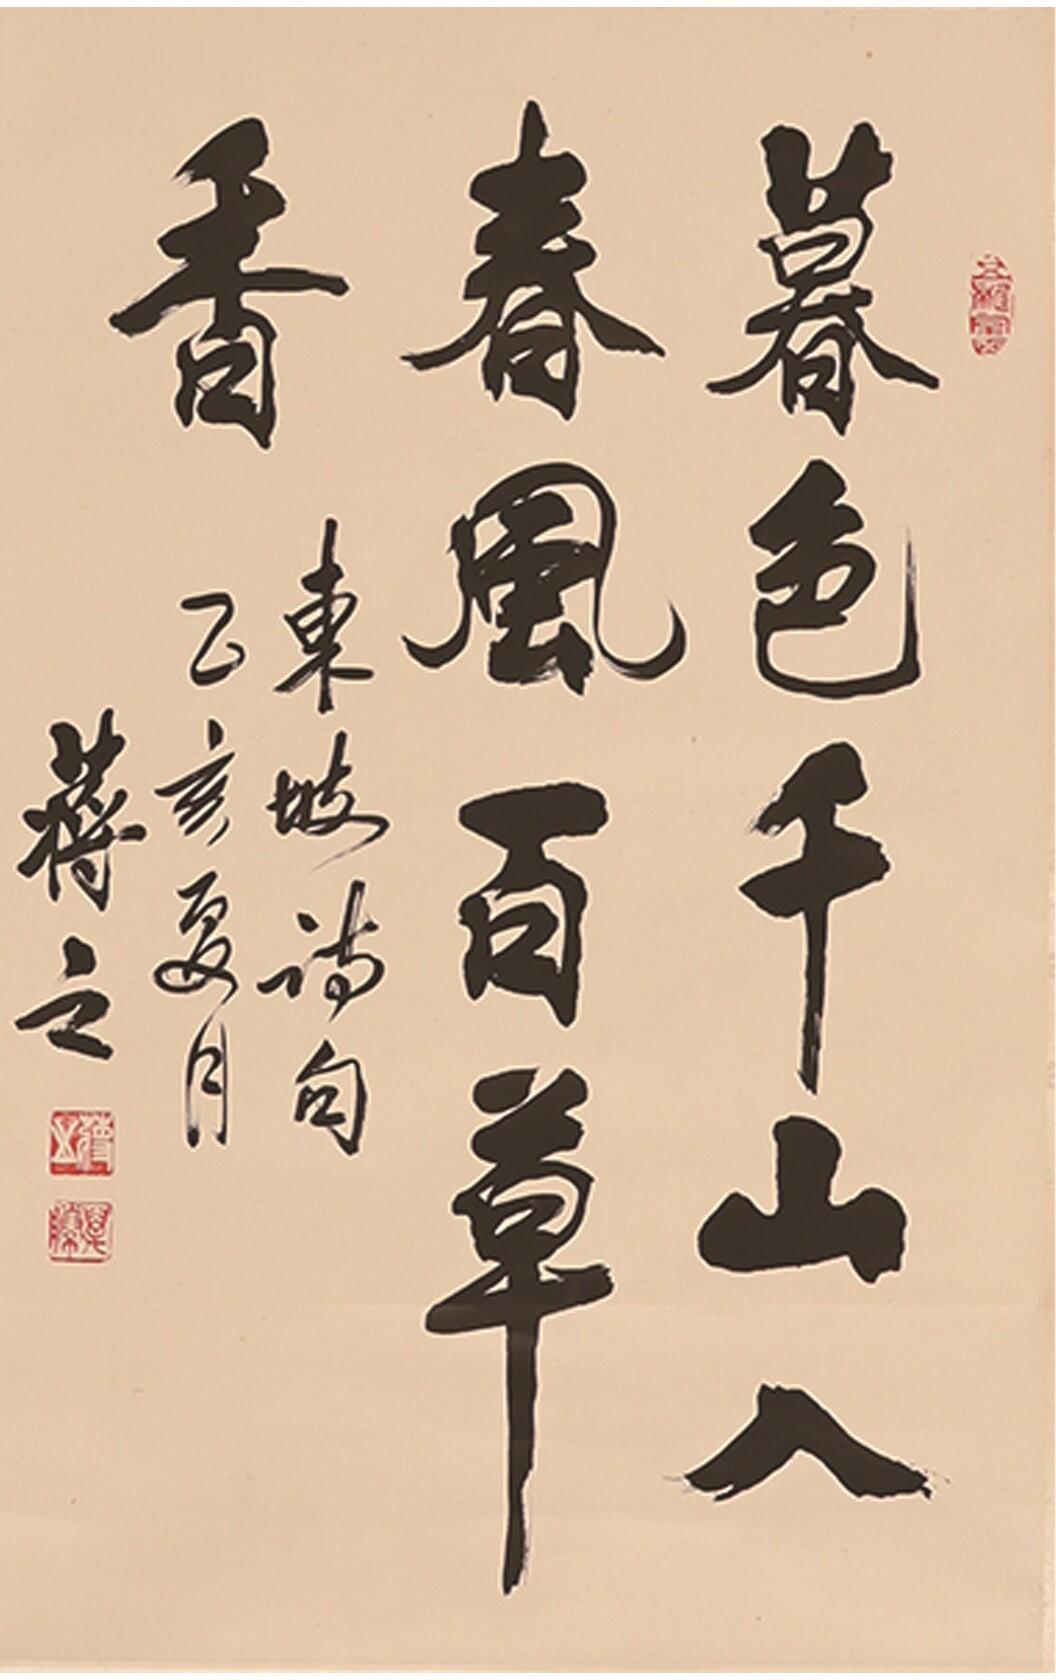 暮色千山入
春風百草
香
東坡詩句
乙亥夏月
蔣立